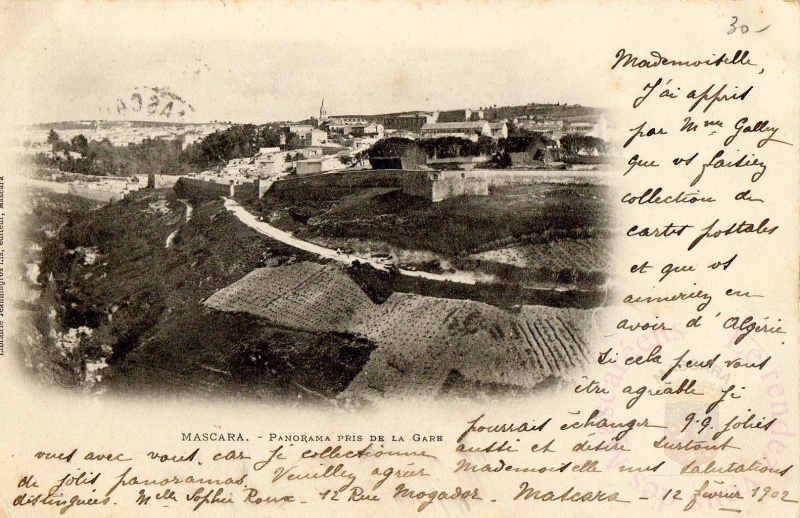 30-
Mademoiselle,
J'ai appris
par Mme Galley
que vs faisiez
collection de
cartes postales
et que vs
aimeriez en
avoir d'Algérie
si cela peut vous
être agréable je
pourrais échanger q.q. jolies
vues avec vous car je collectionne aussi et désire surtout
de jolis panoramas. Veuillez agréer Mademoiselle mes salutations
distinguées. Melle Sophie Roux - 12 Rue Mogador - Mascara - 12 février 1902
MASCARA. - PANORAMA PRIS DE LA GARE
Librairie Jeanningros fils, éditeur, Mascara